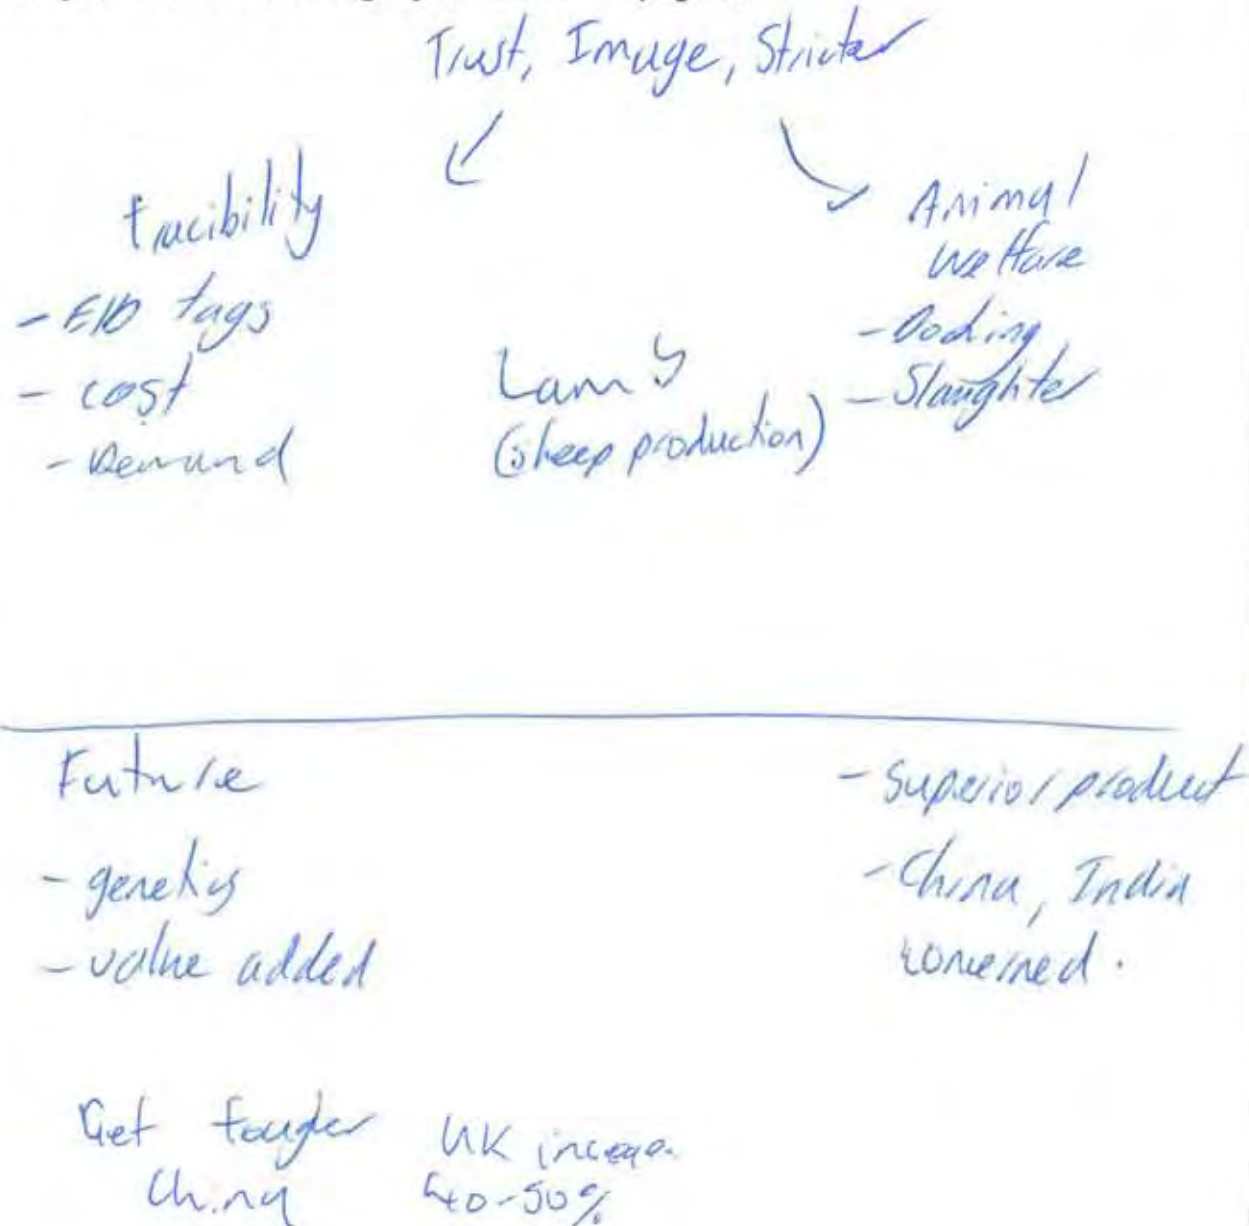 Trust, Image, Stricter
tracibility
- EID tags
- cost
- Demand
Lamb
(sheep production)
Animal
welfare
- Docking
- Slaughter
Future
- genetics
- value added
- Superior product
- China, India
concerned.
Get tougher
China
UK increase
40-50%